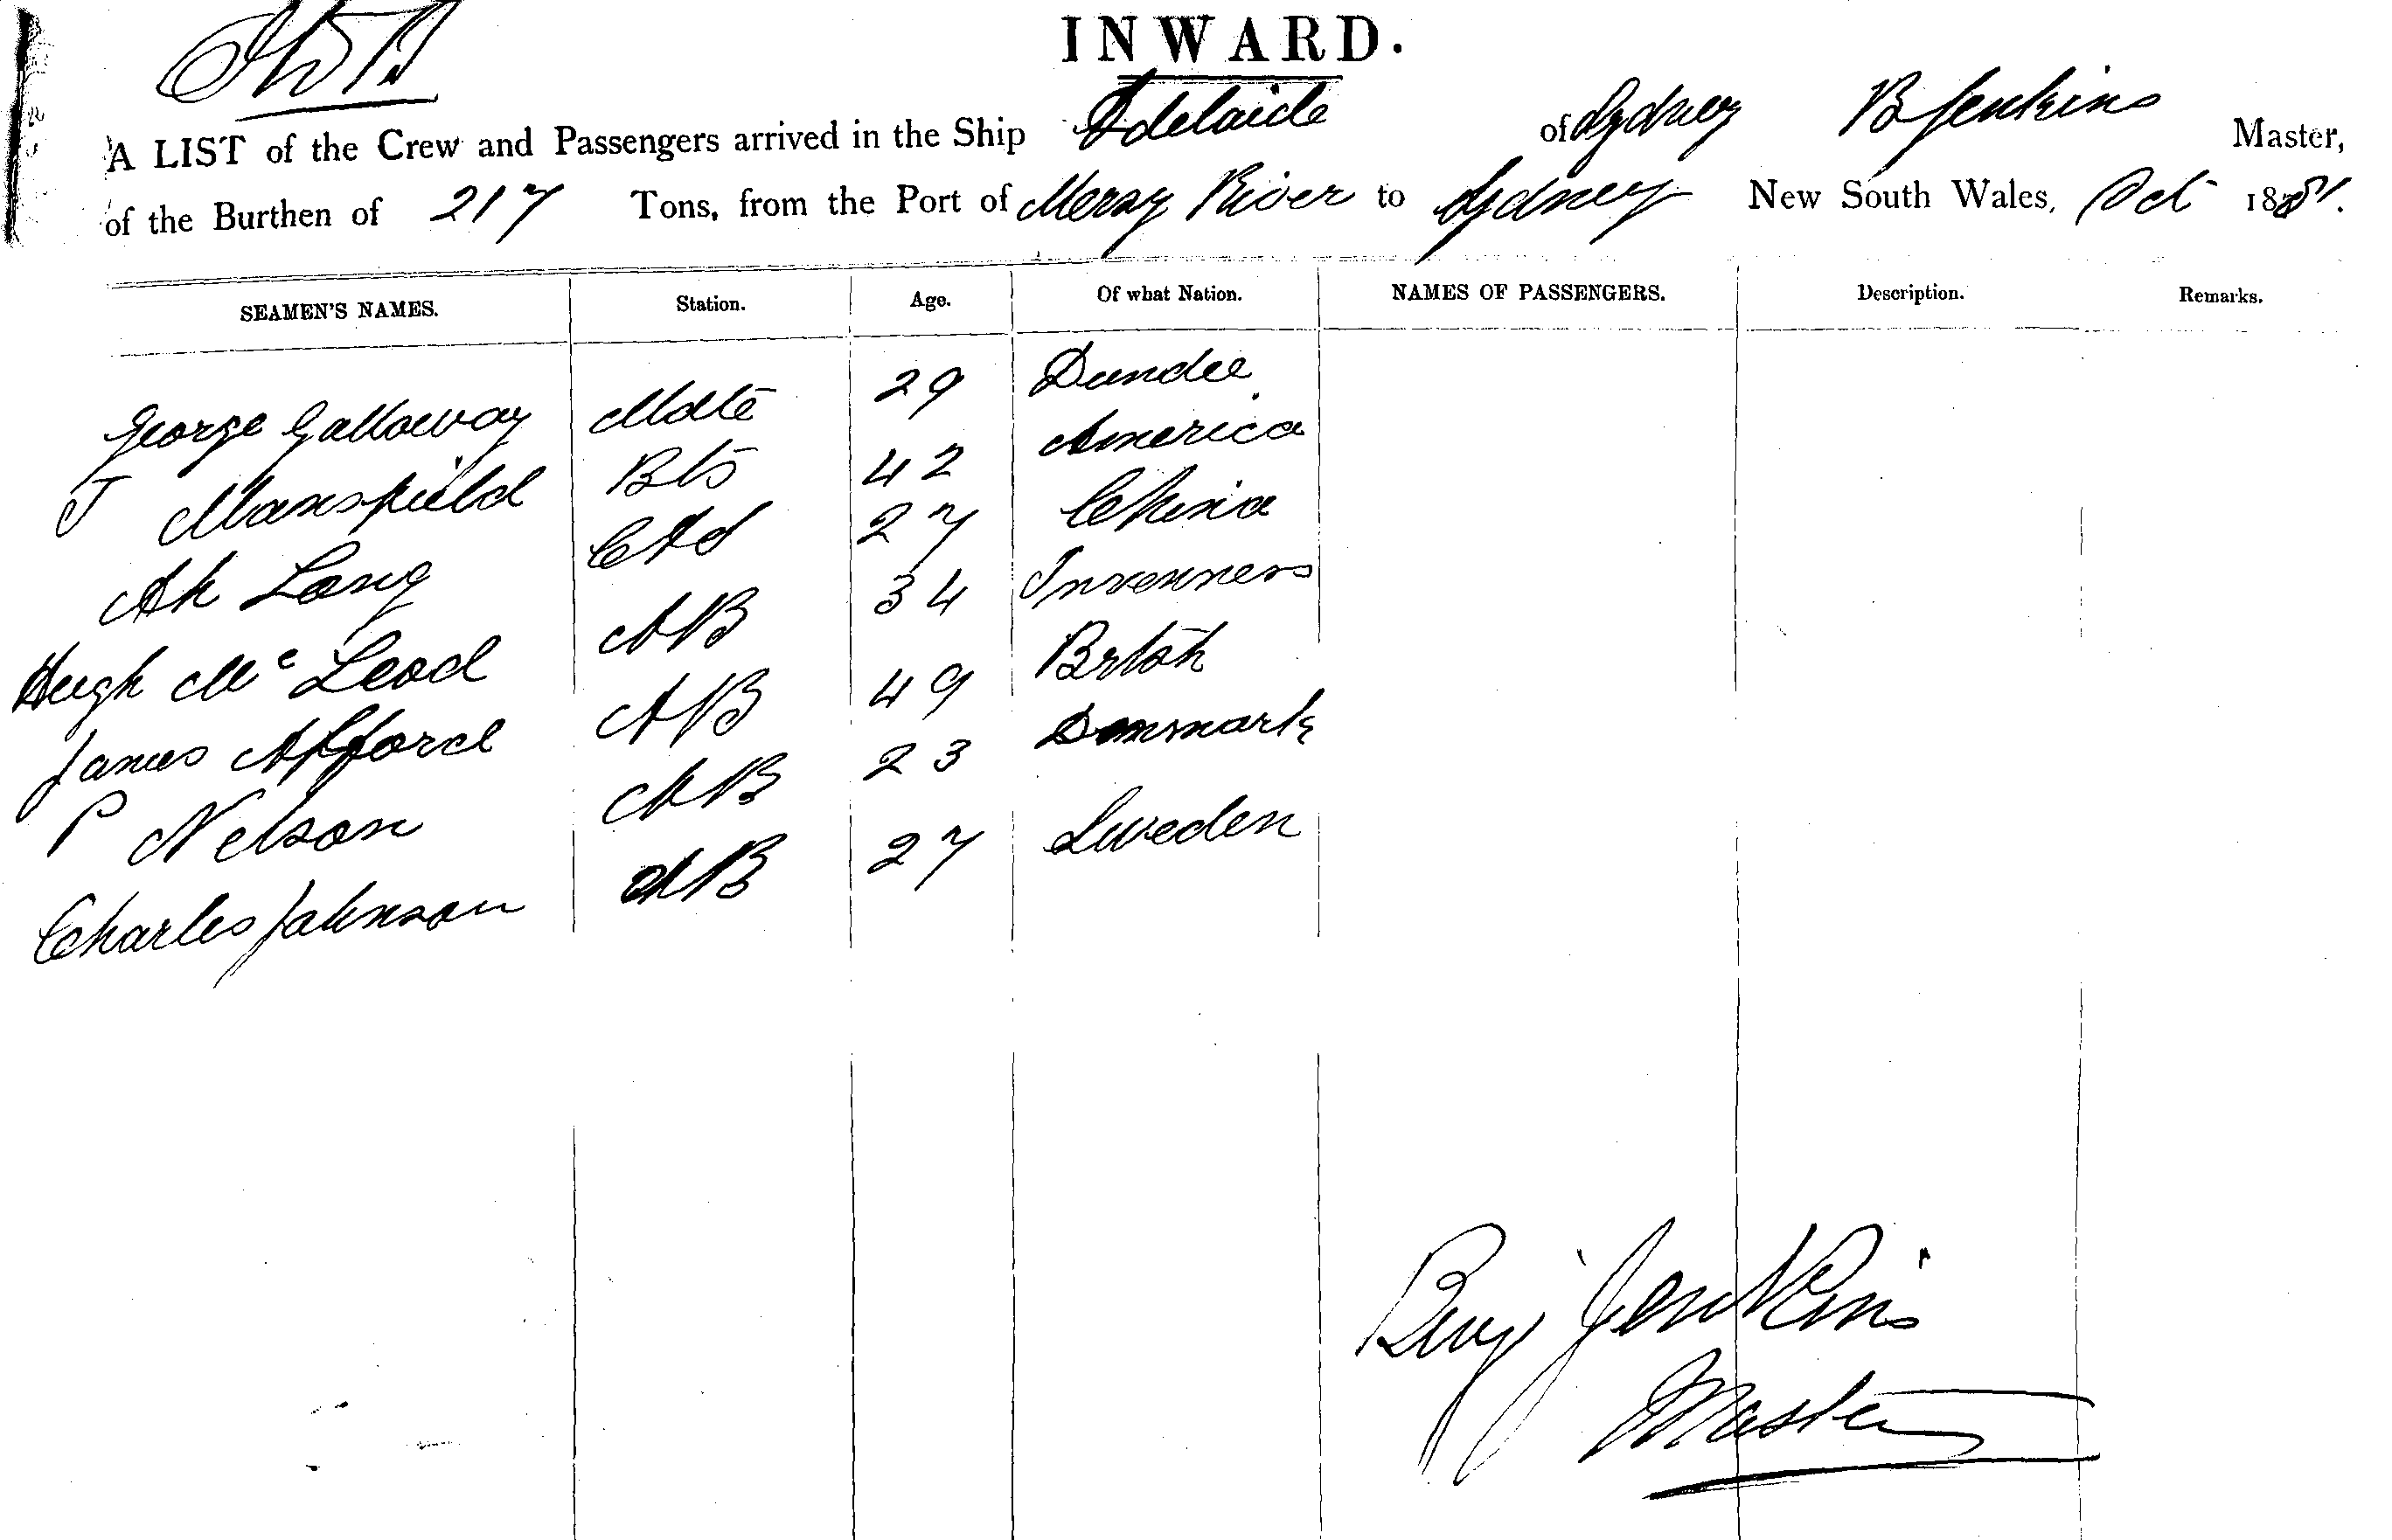 INWARD.
A LIST of the Crew and Passengers arrived in the Ship Adelaide of Sydney B Jenkins Master,
of the Burthen of 217 Tons, from the Port of Mersey River to Sydney New South Wales, Oct 1881.
SEAMEN'S NAMES. Station. Age. Of what Nation. NAMES OF PASSENGERS. Description. Remarks.
George Galloway Mate 29 Dundee
J Mansfield Bts 42 America
Ah Lang C&S 27 China
Hugh Mc Leod AB 34 Inverness
James Afford AB 49 Brtsh
P Nelson AB 23 Denmark
Charles Johnson AB 27 Sweden
Benj Jenkins
Master